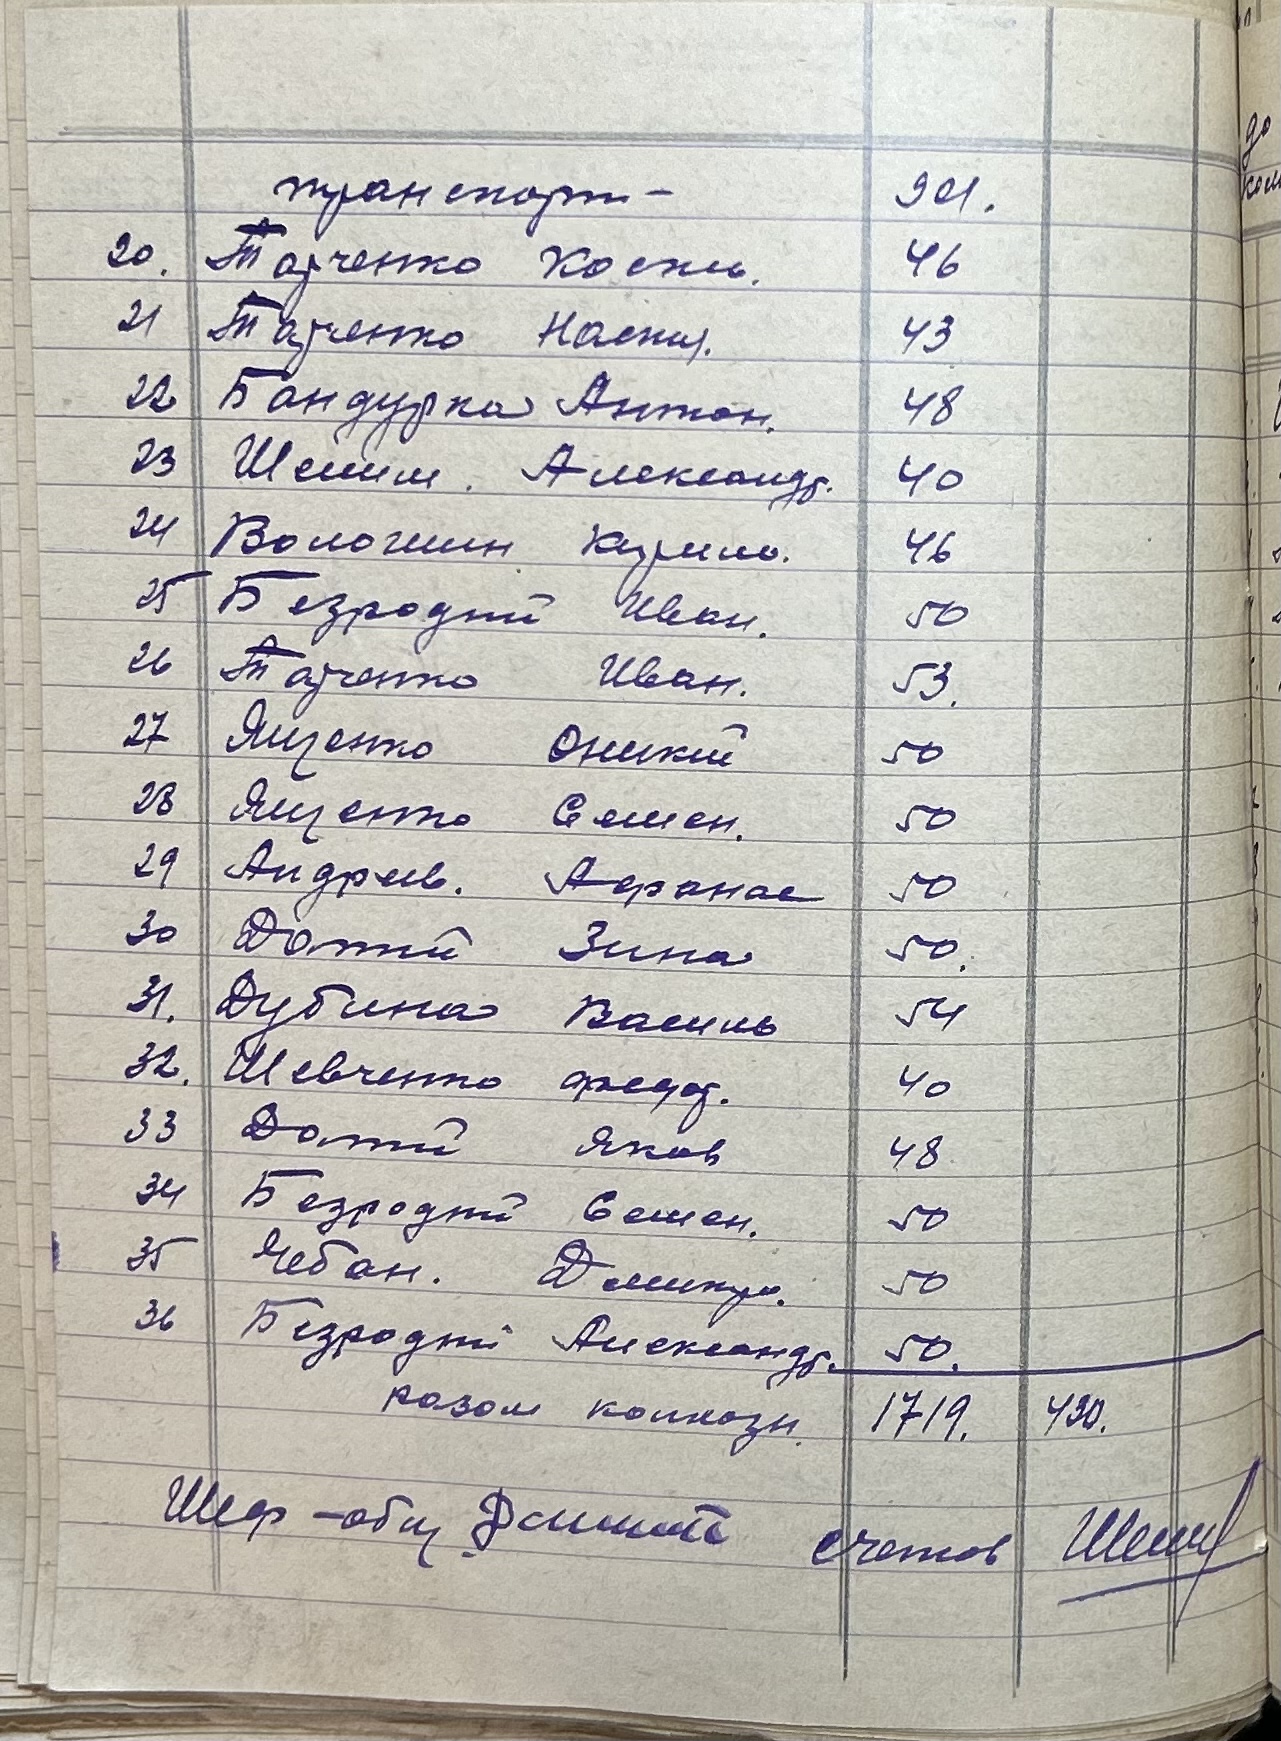 транспорт – 901.
20. Татченко Костя. 46
21 Татченко Настя. 43
22 Бандурка Антон. 48
23 Шемим. Александр. 40
24 Волошин Кирило. 46
25 Безродній Иван. 50
26 Татченко Иван. 53.
27 Яценко Оникій 50
28 Яценко Семен. 50
29 Андреев. Афанас 50
30 Долгий Зина 50.
31. Дубина Василь 54
32. Шевченко Федор. 40
33 Долгий Яков 48
34 Безродній Семен. 50
35 Чебан. Дмитро. 50
36 Безродній Александр. 50.
разом колгозн. 1719. 430.
Шеф счетов